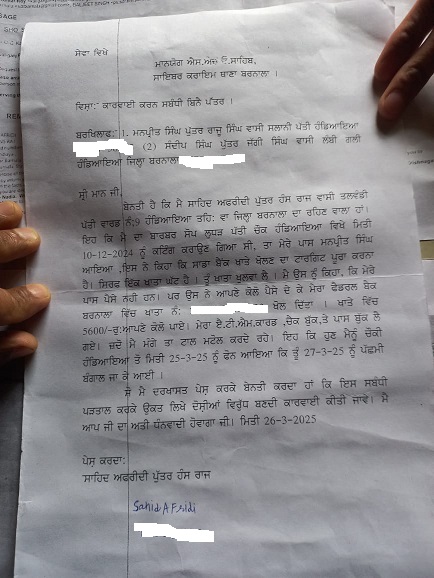 ਸੇਵਾ ਵਿਖੇ
ਮਾਨਯੋਗ ਐਸ.ਐਚ ਓ.ਸਾਹਿਬ,
ਸਾਇਬਰ ਕਰਾਇਮ ਥਾਣਾ ਬਰਨਾਲਾ ।
ਵਿਸ਼ਾ:- ਕਾਰਵਾਈ ਕਰਨ ਸਬੰਧੀ ਬਿਨੈ ਪੱਤਰ ।
ਬਰਖਿਲਾਫ: 1. ਮਨਪ੍ਰੀਤ ਸਿੰਘ ਪੁੱਤਰ ਰਾਜੂ ਸਿੰਘ ਵਾਸੀ ਸਲਾਨੀ ਪੱਤੀ ਹੰਡਿਆਇਆ
(2) ਸੰਦੀਪ ਸਿੰਘ ਪੁੱਤਰ ਜੱਗੀ ਸਿੰਘ ਵਾਸੀ ਲੰਬੀ ਗਲੀ
ਹੰਡਿਆਇਆ ਜਿਲ੍ਹਾ ਬਰਨਾਲਾ
ਸ੍ਰੀ ਮਾਨ ਜੀ,
ਬੇਨਤੀ ਹੈ ਕਿ ਮੈ ਸਾਹਿਦ ਅਫਰੀਦੀ ਪੁੱਤਰ ਹੰਸ ਰਾਜ ਵਾਸੀ ਤਲਵੰਡੀ
ਪੱਤੀ ਵਾਰਡ ਨੰ:9 ਹੰਡਿਆਇਆ ਤਹਿ: ਵਾ ਜਿਲ੍ਹਾ ਬਰਨਾਲਾ ਦਾ ਰਹਿਣ ਵਾਲਾ ਹਾਂ।
ਇਹ ਕਿ ਮੈ ਦਾ ਬਾਰਬਰ ਸੋਪ ਲੁਧੜ ਪੱਤੀ ਚੌਕ ਹੰਡਿਆਇਆ ਵਿਖੇ ਮਿਤੀ
10-12-2024 ਨੂੰ ਕਟਿੰਗ ਕਰਾਉਣ ਗਿਆ ਸੀ, ਤਾ ਮੇਰੇ ਪਾਸ ਮਨਪ੍ਰੀਤ ਸਿੰਘ
ਆਇਆ ,ਇਸ ਨੇ ਕਿਹਾ ਕਿ ਸਾਡਾ ਬੈਕ ਖਾਤੇ ਖੋਲਣ ਦਾ ਟਾਰਗਿਟ ਪੂਰਾ ਕਰਨਾ
ਹੈ। ਸਿਰਫ ਇੱਕ ਖਾਤਾ ਘੱਟ ਹੈ । ਤੂੰ ਖਾਤਾ ਖੁਲਵਾ ਲੈ । ਮੈ ਉਸ ਨੂੰ ਕਿਹਾ, ਕਿ ਮੇਰੇ
ਪਾਸ ਪੈਸੇ ਨਹੀ ਹਨ। ਪਰ ਉਸ ਨੇ ਆਪਣੇ ਕੋਲੋ ਪੈਸੇ ਦੇ ਕੇ ਮੇਰਾ ਫੈਡਰਲ ਬੈਕ
ਬਰਨਾਲਾ ਵਿੱਚ ਖਾਤਾ ਨੰ: ਖੋਲ ਦਿੱਤਾ । ਖਾਤੇ ਵਿੱਚ
5600/-ਰੁ:ਆਪਣੇ ਕੋਲੋ ਪਾਏ। ਮੇਰਾ ਏ.ਟੀ.ਐਮ.ਕਾਰਡ ,ਚੈਕ ਬੁੱਕ,ਤੇ ਪਾਸ ਬੁੱਕ ਲੈ
ਗਏ। ਜਦੋ ਮੈ ਮੰਗੇ ਤਾ ਟਾਲ ਮਟੋਲ ਕਰਦੇ ਰਹੇ। ਇਹ ਕਿ ਹੁਣ ਮੈਨੂੰ ਚੌਕੀ
ਹੰਡਿਆਇਆ ਤੋਂ ਮਿਤੀ 25-3-25 ਨੂੰ ਫੋਨ ਆਇਆ ਕਿ ਤੂੰ 27-3-25 ਨੂੰ ਪੱਛਮੀ
ਬੰਗਾਲ ਜਾ ਕੇ ਆਈ ।
ਸੋ ਮੈ ਦਰਖਾਸਤ ਪੇਸ਼ ਕਰਕੇ ਬੇਨਤੀ ਕਰਦਾ ਹਾਂ ਕਿ ਇਸ ਸਬੰਧੀ
ਪੜਤਾਲ ਕਰਕੇ ਉਕਤ ਲਿਖੇ ਦੋਸ਼ੀਆਂ ਵਿਰੁੱਧ ਬਣਦੀ ਕਾਰਵਾਈ ਕੀਤੀ ਜਾਵੇ। ਮੈ
ਆਪ ਜੀ ਦਾ ਅਤੀ ਧੰਨਵਾਦੀ ਹੋਵਾਗਾ ਜੀ। ਮਿਤੀ 26-3-2025
ਪੇਸ਼ ਕਰਦਾ:
ਸਾਹਿਦ ਅਫਰੀਦੀ ਪੁੱਤਰ ਹੰਸ ਰਾਜ
Sahid AFridi